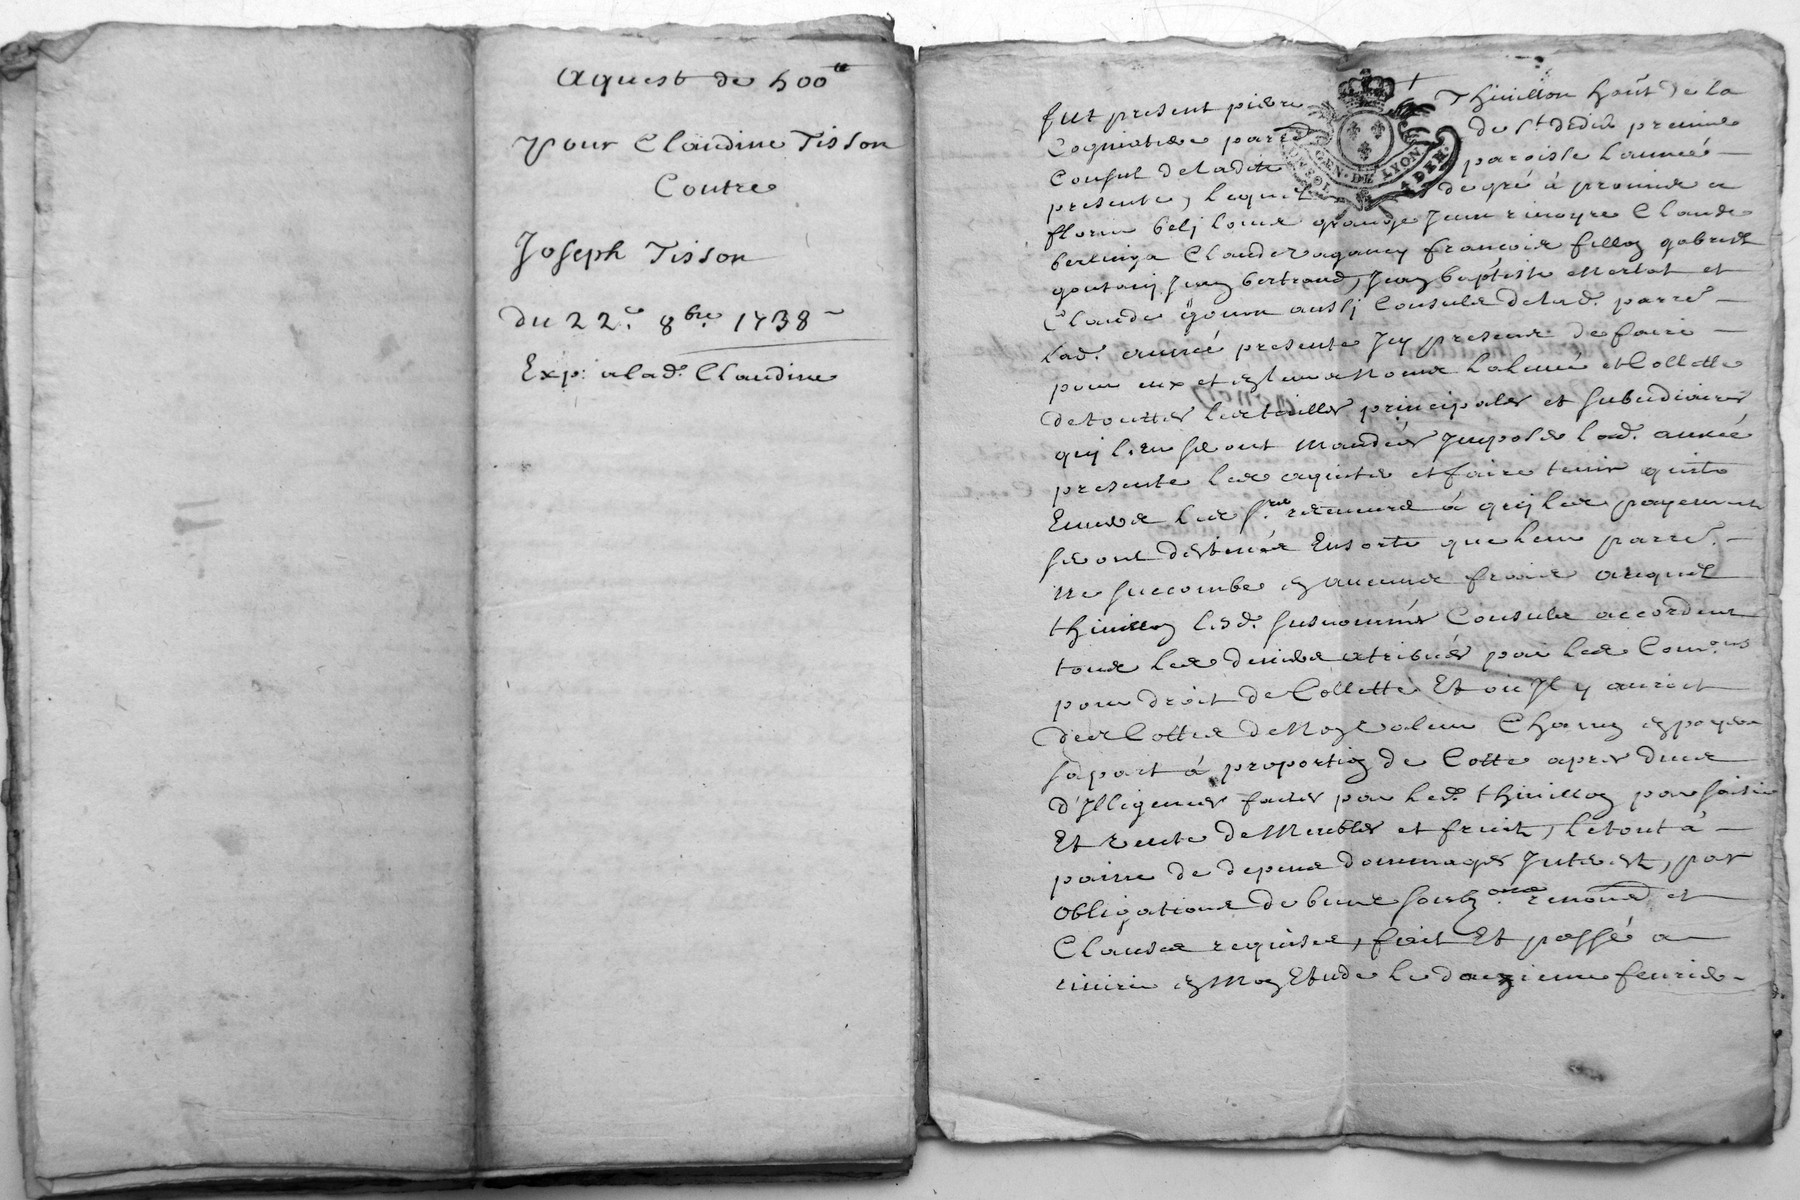 Aquest de 500ᵗᵗ
Pour Claudine Tisson
Contre
Joseph Tisson
du 22.e 8bre. 1738
Exp: alad.e Claudine
GEN. DE LYON
4 DEN.
fut present pierre Thiuillon haut de la
Cogniotiere parre de St. didier premier
Consul deladite paroisse lannée
presente, lequel de gré à promis a
florin louis grange Jean Claude
Claude francois filloz gabriel
Jean bertrand, Jean baptiste merlat et
Claude gouon aussj Consuls delad. parre.
lad. année presente Jcy present de faire
pour eux et en leurs noms la leuée et Collette
detouttes les tailles principales et subsidiaires
quj leur seront mandées Jmposés lad. année
presente les et faire tenir quitte
Enuers les srs. receueurs à quj les payements
seront destinés Ensorte que leur parre.
ne succombe en aucuns frais auquel
thiuilloz lesd. susnommés Consuls accordent
tous les deniers atribués par les Comons
pour droit de Collette Et ou Jl y auroit
des Cottes de Non valeur Chacun en payera
sapart à proportion de Cotte apres dues
d'Illigences faites par led. thiuilloz par saisie
Et vente de Meubles et fruits, letout à
paine de depens dommages Jnterest, par
obligations de biens renond. et
Clauses requises, fait Et passé a
en Mon Etude le douzieme feurier